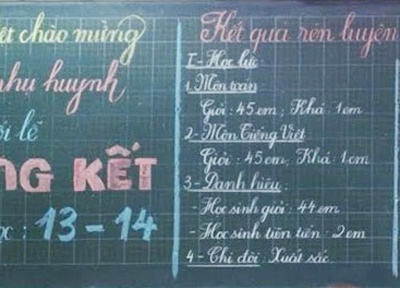 ệt chào mừng
hụ huynh
ổi lễ
NG KẾT
ọc : 13 - 14
Kết quả rèn luyện
I - Học lực
1. Môn toán
Giỏi : 45 em ; Khá : 1 em
2 - Môn Tiếng Việt
Giỏi : 45 em ; Khá : 1 em
3 - Danh hiệu :
- Học sinh giỏi : 44 em
- Học sinh tiên tiến : 2 em
4 - Chi đội : Xuất sắc